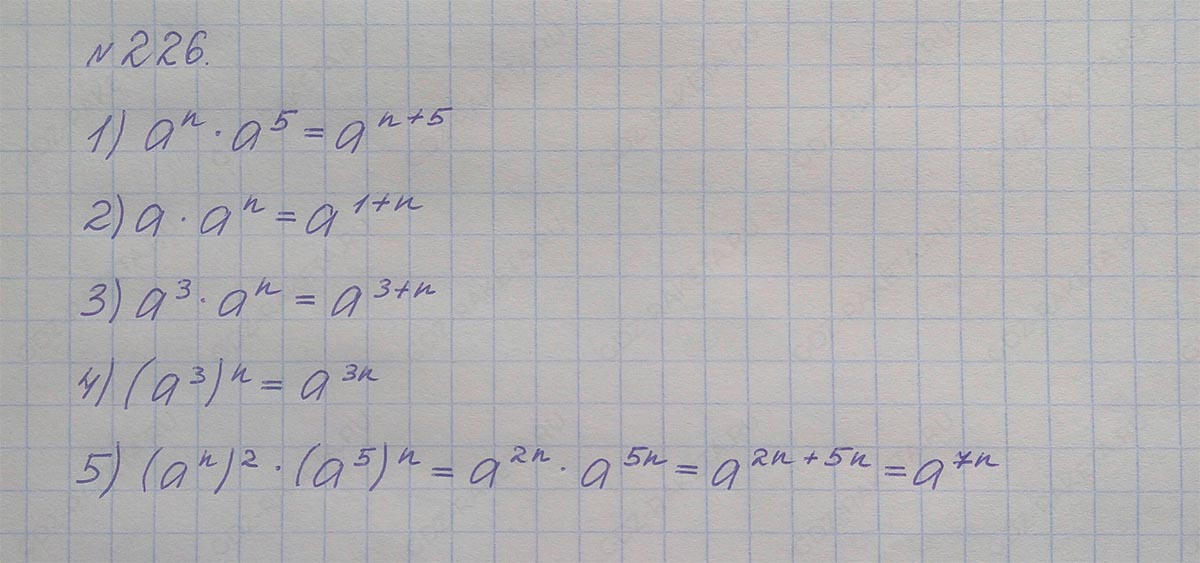 №226.
1) aⁿ · a⁵ = aⁿ⁺⁵
2) a · aⁿ = a¹⁺ⁿ
3) a³ · aⁿ = a³⁺ⁿ
4) (a³)ⁿ = a³ⁿ
5) (aⁿ)² · (a⁵)ⁿ = a²ⁿ · a⁵ⁿ = a²ⁿ⁺⁵ⁿ = a⁷ⁿ